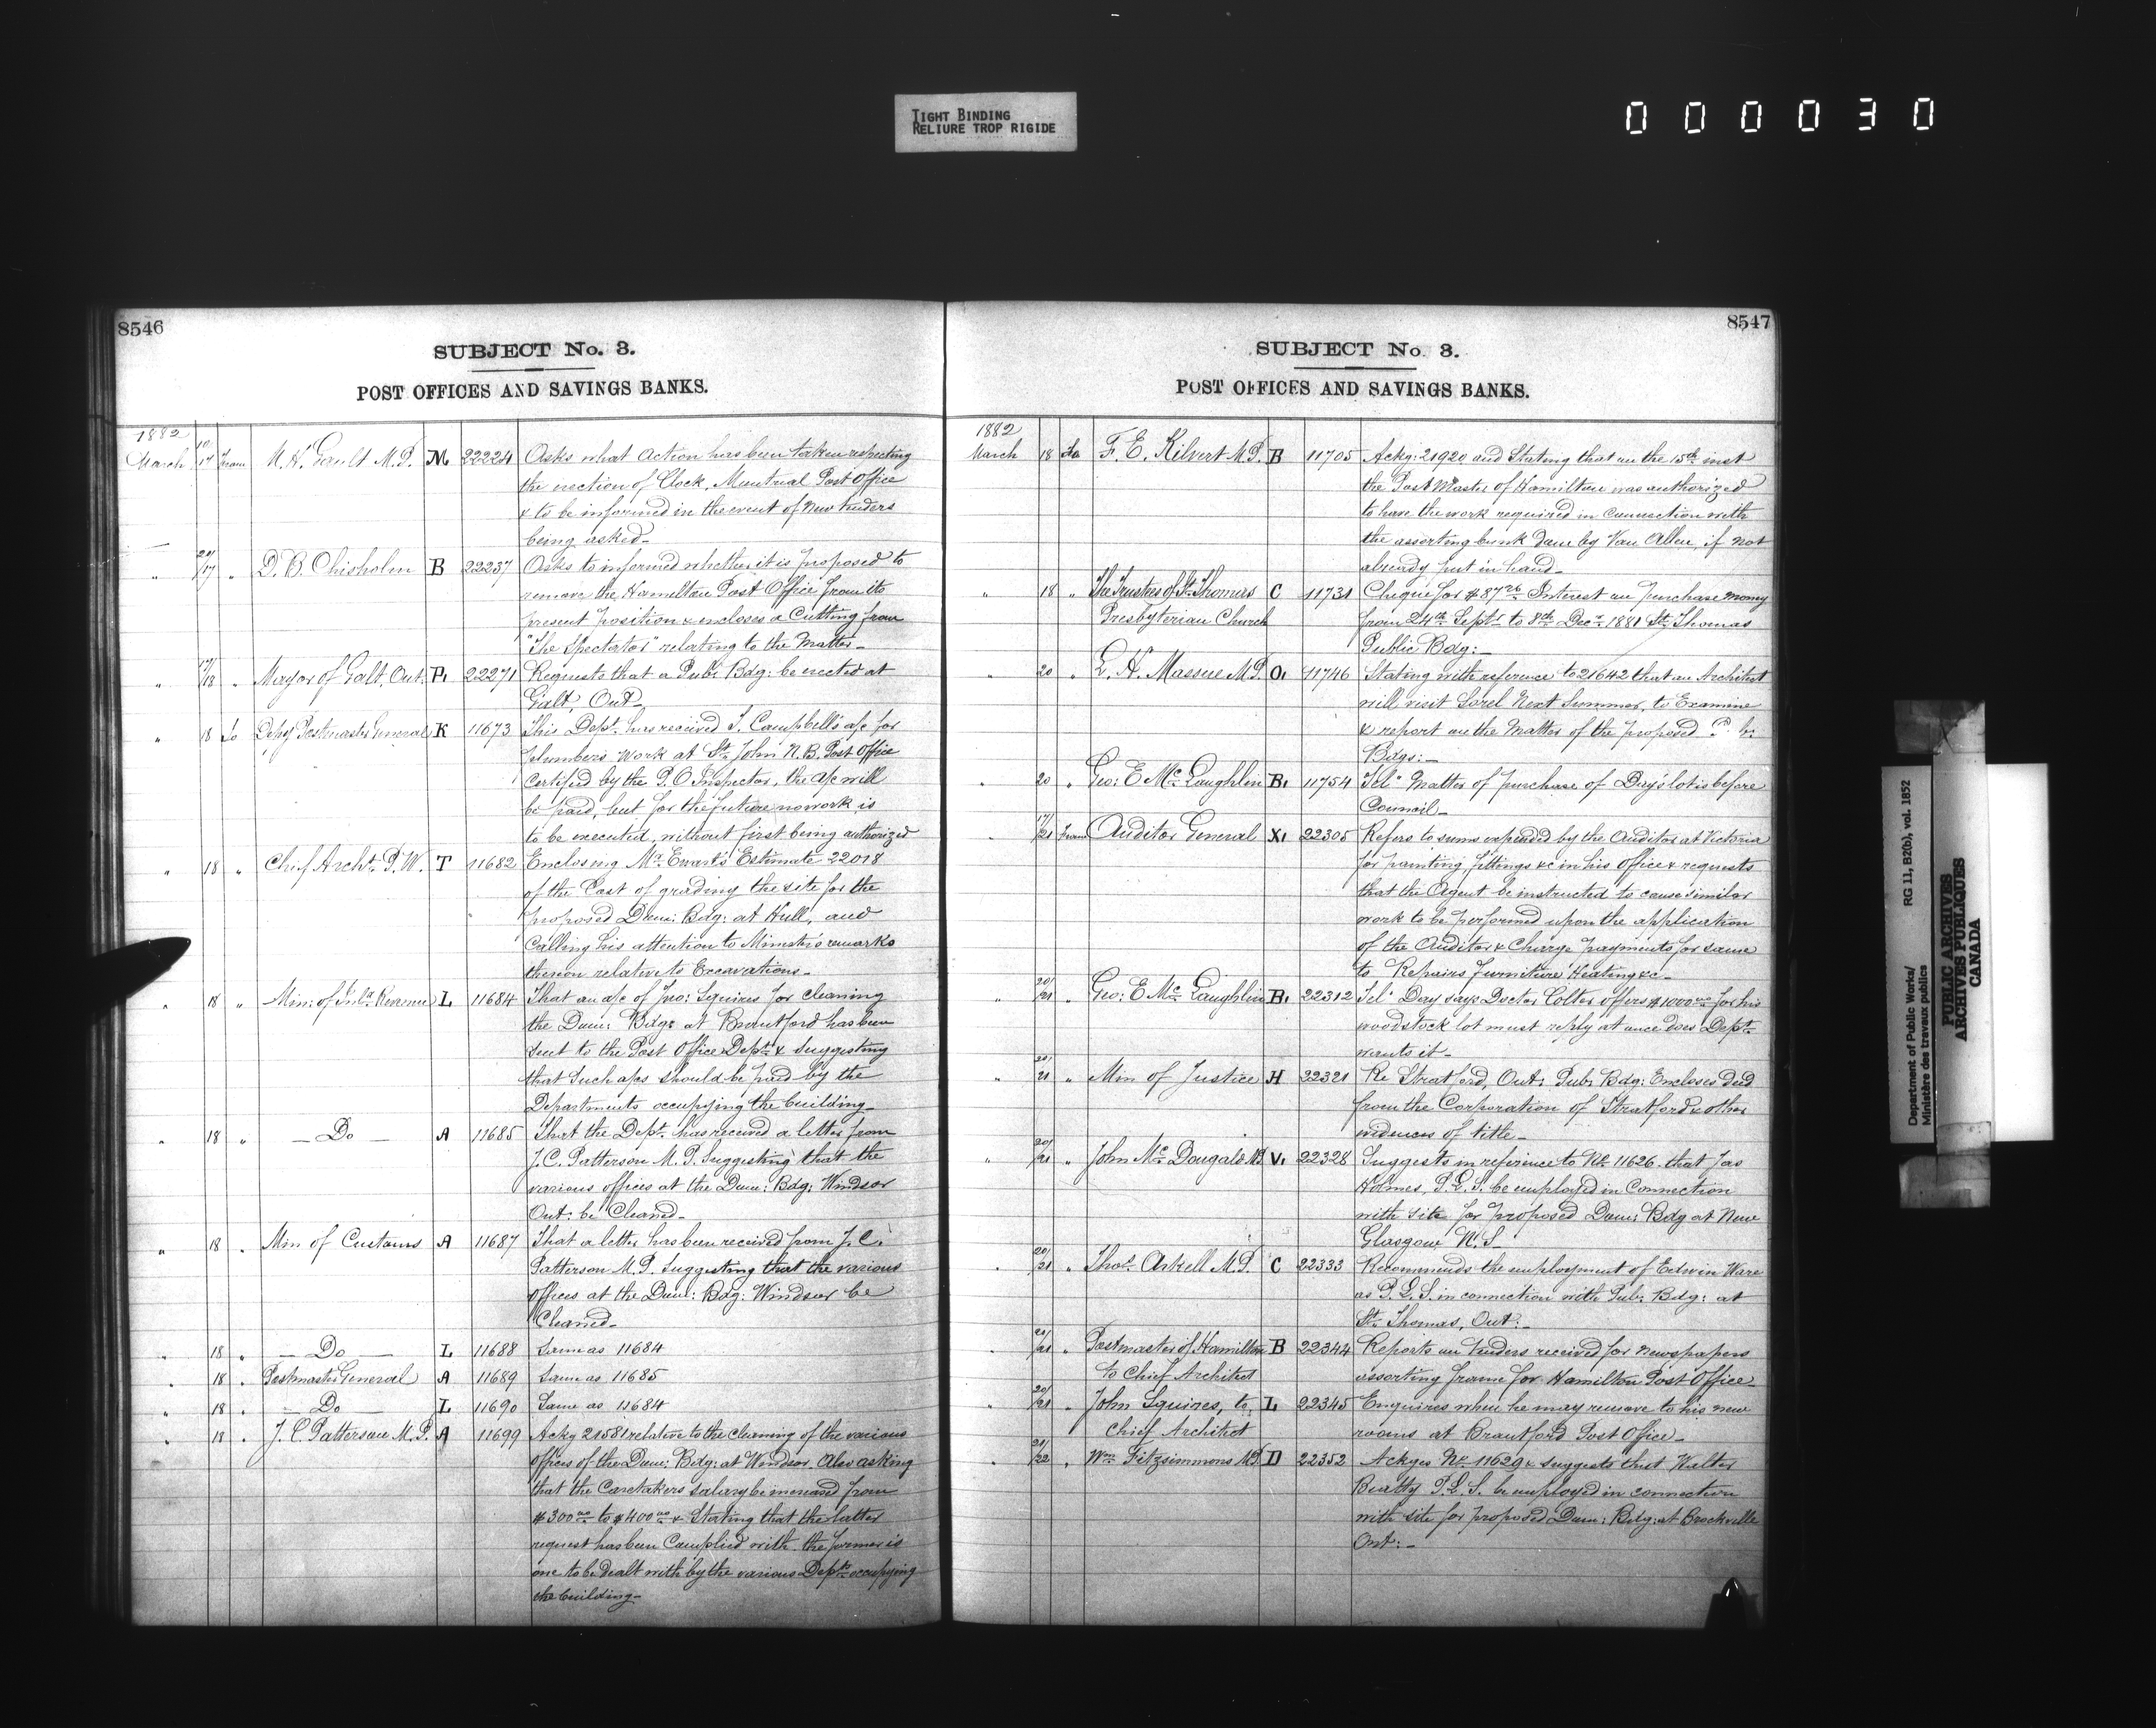 TIGHT BINDING
RELIURE TROP RIGIDE
000030
8546
SUBJECT No. 3.
POST OFFICES AND SAVINGS BANKS.
1882
March 17 From M. H. Gault M.P. M 22224 Asks what action has been taken respecting
the erection of Clock, Montreal Post Office
& to be informed in the event of new tenders
being asked—
" 20/17 " D. B. Chisholm B 22237 Asks to informed whether it is proposed to
remove the Hamilton Post Office from its
present position & encloses a Cutting from
"The Spectator" relating to the Matter—
" 17/18 " Mayor of Galt, Ont: P1 22271 Requests that a Pub: Bdg: be erected at
Galt, Ont—
" 18 To Depy Postmaster General K 11673 This Dept. has received J. Campbell's a/c for
plumbers work at St. John N.B. Post Office
Certified by the P.O Inspector, the a/c will
be paid, but for the future no work is
to be executed, without first being authorized
" 18 " Chief Archt. P.W. T 11682 Enclosing Mr. Ewart's Estimate 22018
of the Cost of grading the site for the
proposed Dom: Bdg: at Hull, and
Calling his attention to Minister's remarks
thereon relative to Excavations—
" 18 " Min: of Inld Revenue L 11684 That an a/c of Jno: Squires for cleaning
the Dom: Bdg: at Brantford has been
sent to the Post Office Dept. & Suggesting
that Such a/cs should be paid by the
Departments occupying the building—
" 18 " — Do — A 11685 That the Dept. has received a letter from
J.C. Patterson M.P. Suggesting that the
various offices at the Dom: Bdg: Windsor
Ont: be Cleaned—
" 18 " Min of Customs A 11687 That a letter has been received from J.C.
Patterson M.P. Suggesting that the various
offices at the Dom: Bdg: Windsor be
Cleaned—
" 18 " — Do — L 11688 Same as 11684
" 18 " Postmaster General A 11689 Same as 11685
" 18 " — Do — L 11690 Same as 11684
" 18 " J. C. Patterson M.P. A 11699 Ackg 21581 relative to the cleaning of the various
offices of the Dom: Bdg: at Windsor. Also asking
that the Caretakers salary be increased from
$300.00 to $400.00 & Stating that the latter
request has been Complied with. the former is
one to be dealt with by the various Depts. occupying
the building—
8547
SUBJECT No. 3.
POST OFFICES AND SAVINGS BANKS.
1882
March 18 To F. E. Kilvert M.P. B 11705 Ackg: 21920 and Stating that on the 15th inst
the Post Master of Hamilton was authorized
to have the work required in connection with
the assorting bunk done by Van Allen, if not
already put in hand—
" 18 " The Trustees of St. Thomas C 11731 Cheque for $87.26 Interest on purchase money
Presbyterian Church from 24th Septr to 8th Decr 1881 St. Thomas
Public Bdg:—
" 20 " L. H. Massue M.P. O1 11746 Stating with reference to 21642 that an Architect
will visit Sorel Next Summer, to Examine
& report on the Matter of the proposed P. b.
Bdgs:—
" 20 " Geo: E McLaughlin B1 11754 Tel: Matter of purchase of Day's lot is before
Council—
17/21 From Auditor General X1 22305 Refers to sums expended by the Auditor at Victoria
for painting, fittings &c in his office & requests
that the Agent be instructed to cause similar
work to be performed upon the application
of the Auditor & Charge payments for same
to Repairs furniture Heating &c—
" 20/21 " Geo: E McLaughlin B1 22312 Tel: Day says Doctor Colter offers $1000.00 for his
woodstock lot must reply at once does Dept.
wants it—
" 20/21 " Min of Justice H 22321 Re Stratford, Ont: Pub: Bdg: Encloses Deed
from the Corporation of Stratford & other
evidences of title—
" 20/21 " John McDougald M.P. V1 22328 Suggests in reference to No. 11626 that Jas
Holmes, P.L.S. be employed in Connection
with site for proposed Dom: Bdg at New
Glasgow N.S—
" 20/21 " Thos. Arkell M.P. C 22333 Recommends the employment of Edwin Ware
as P.L.S. in connection with Pub: Bdg: at
St. Thomas, Ont:—
" 20/21 " Postmaster of Hamilton B 22344 Reports on tenders received for newspapers
to Chief Architect assorting frame for Hamilton Post Office—
" 20/21 " John Squires, to L 22345 Enquires when he may remove to his new
Chief Architect rooms at Brantford Post Office—
" 21/22 " Wm Fitzsimmons M.P. D 22352 Ackges No. 11629 & suggests that Walter
Beatty P.L.S. be employed in connection
with site for proposed Dom: Bdg: at Brockville
Ont:—
Department of Public Works/ RG 11, B2(b), vol. 1852
Ministère des travaux publics
PUBLIC ARCHIVES
ARCHIVES PUBLIQUES
CANADA